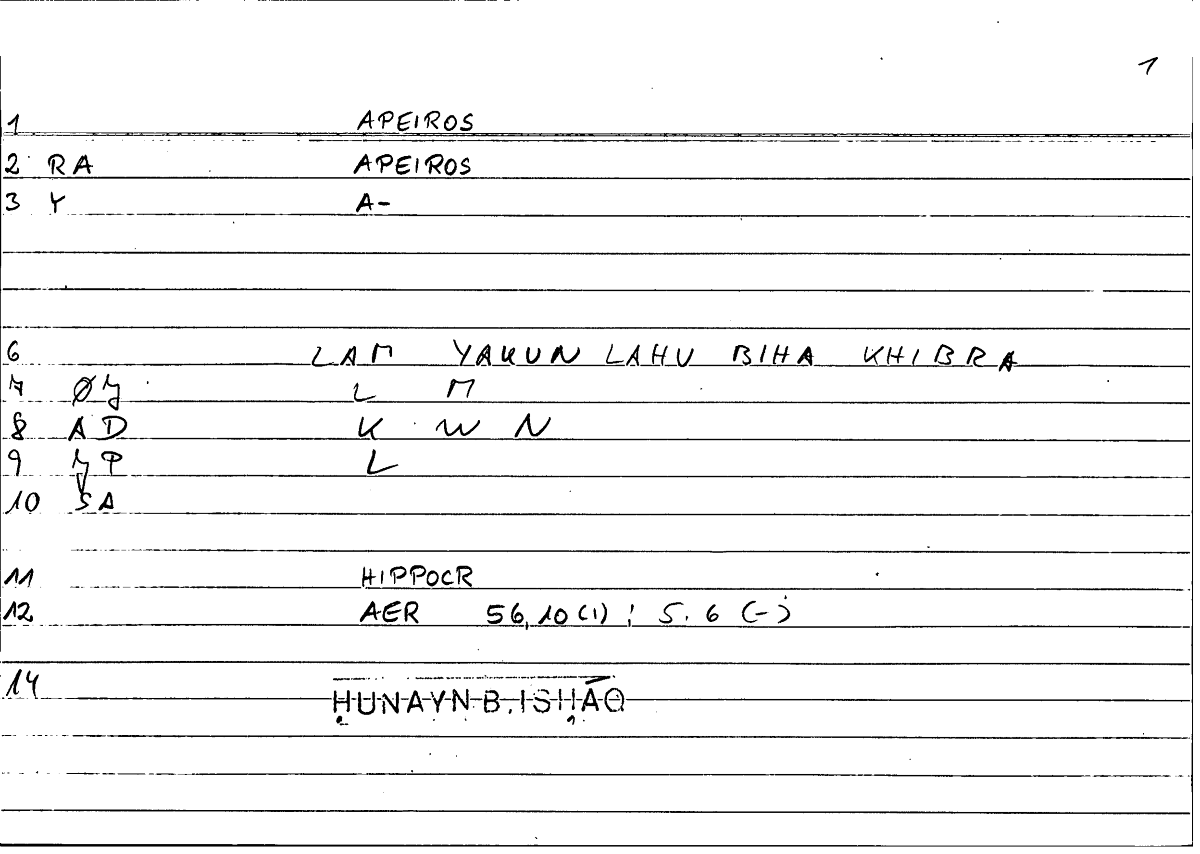 1
1 APEIROS
2 RA APEIROS
3 Y A-
6 LAM YAKUN LAHU BIHA KHIBRA
7 L M
8 AD K W N
9 L
10 A
11 HIPPOCR
12 AER 56,10(1) ; 5.6 (-)
14 ḤUNAYN B. ISḤĀQ